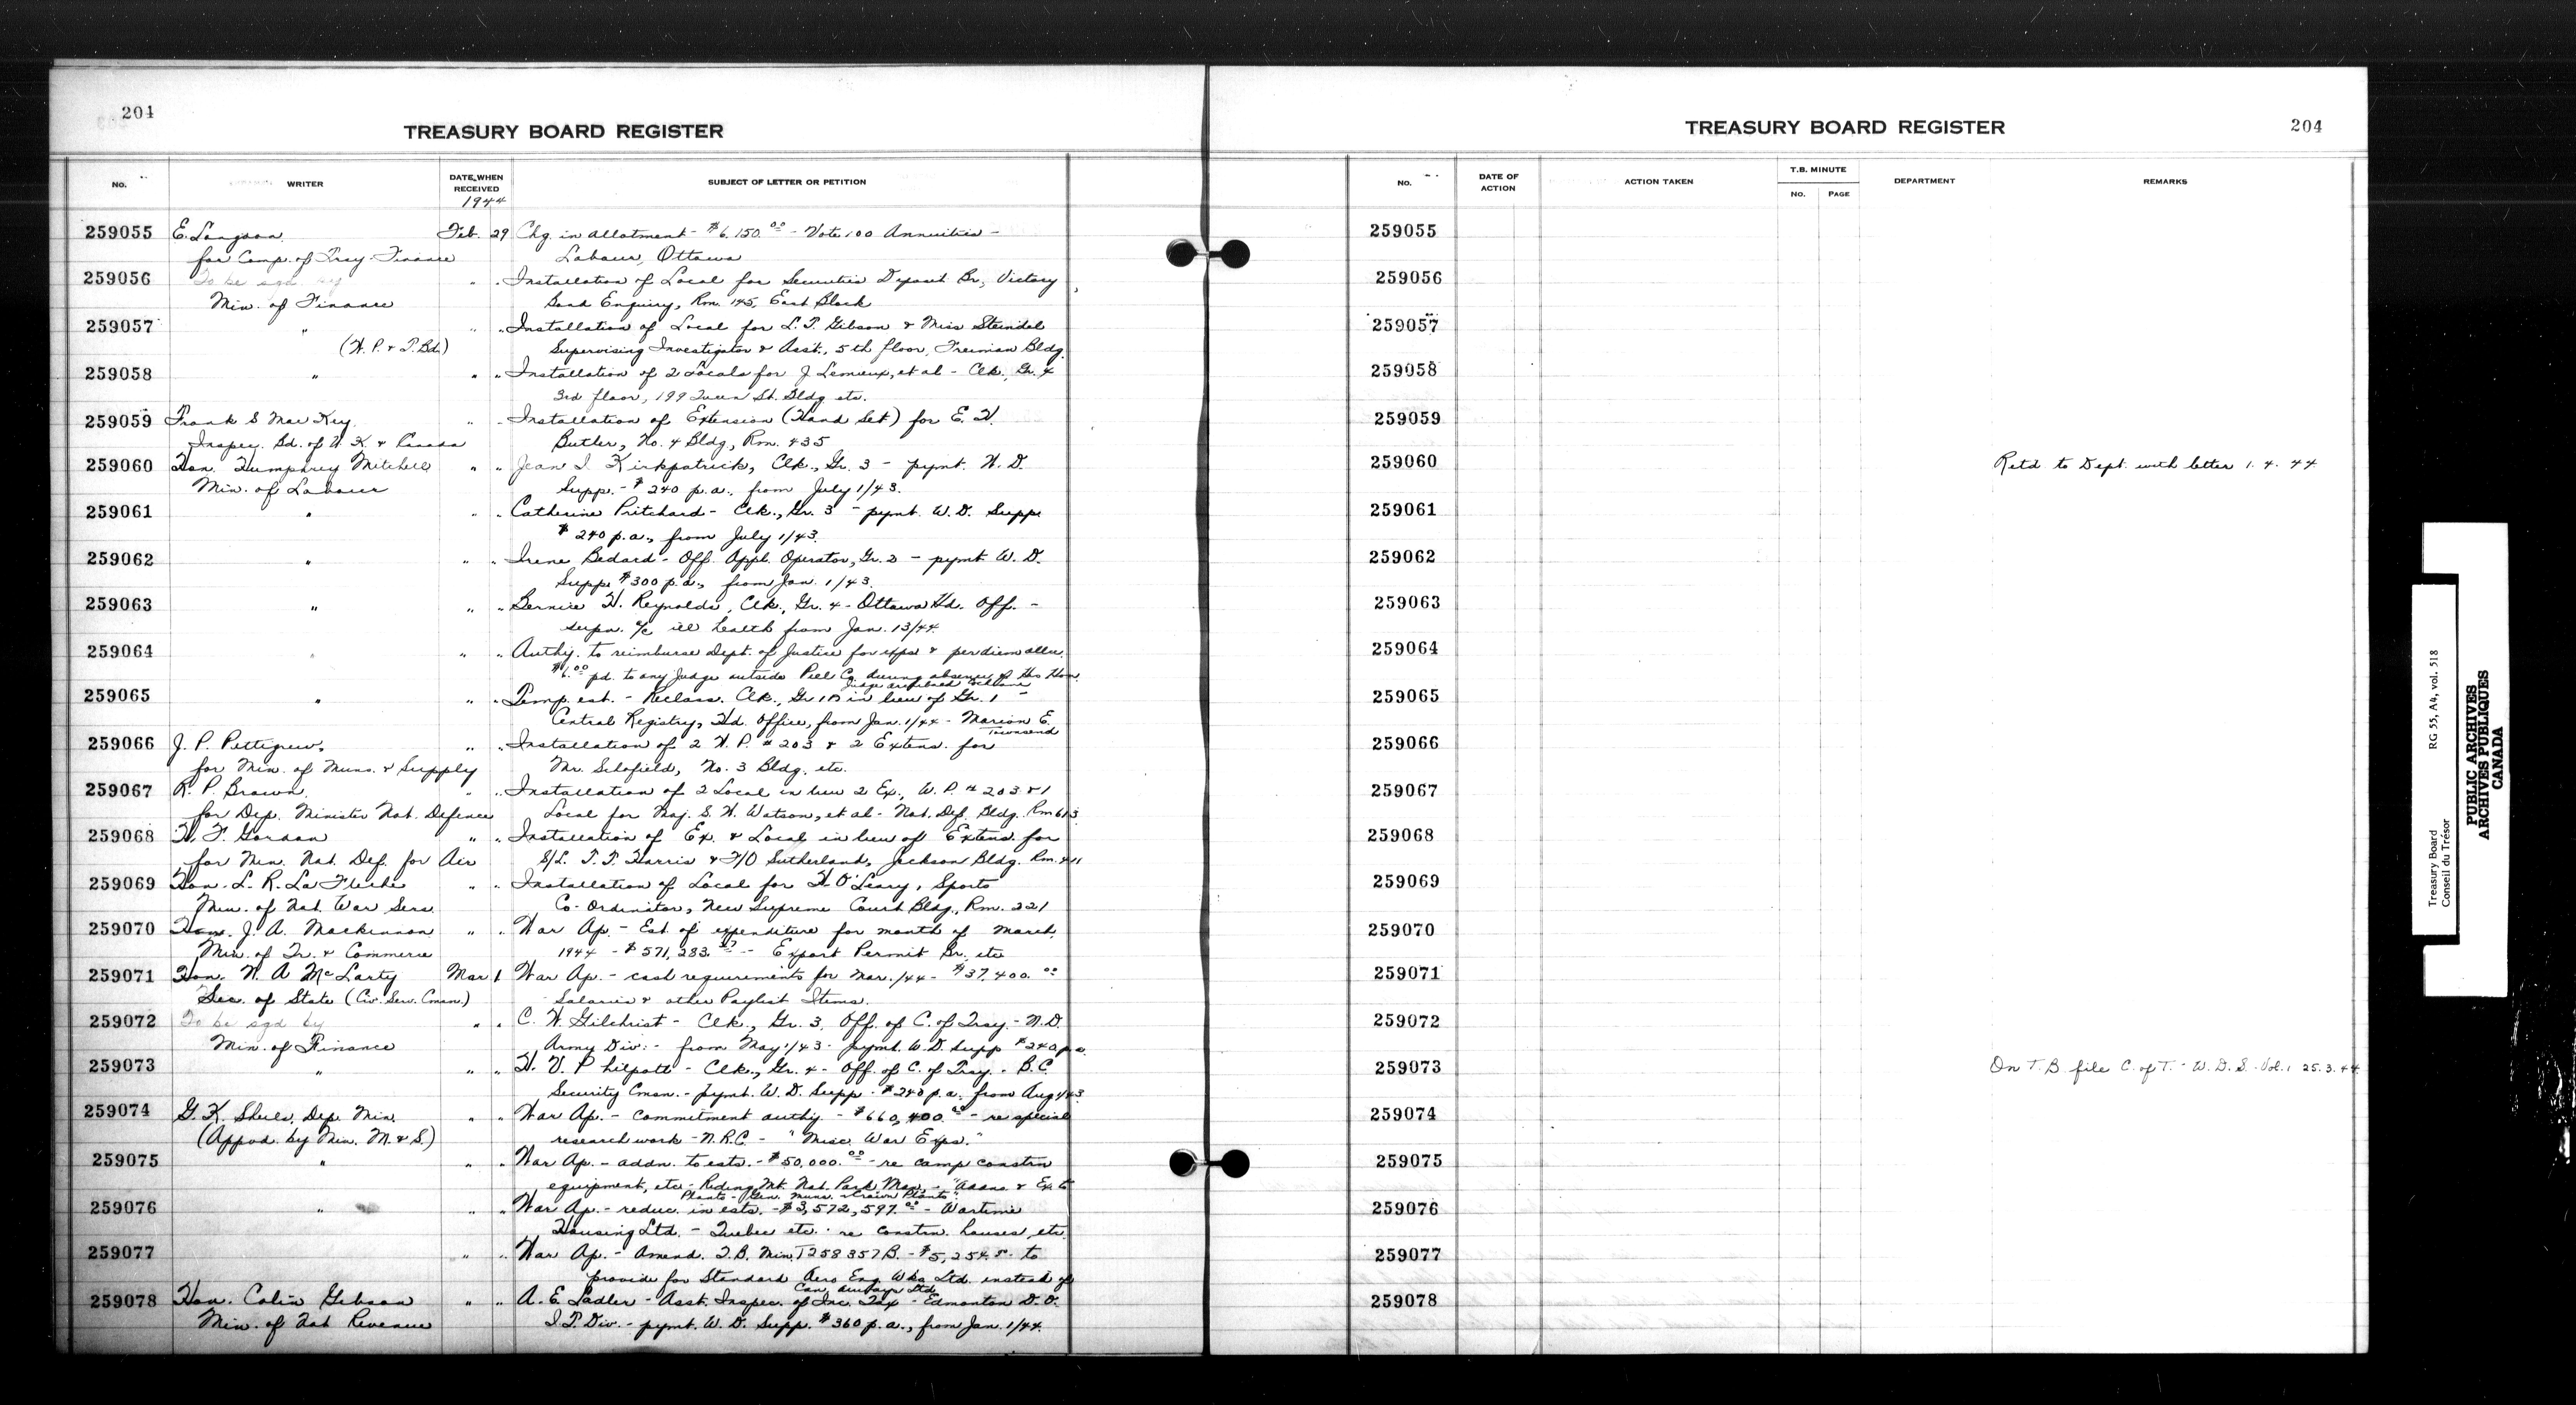 204
TREASURY BOARD REGISTER
No.
WRITER
DATE WHEN RECEIVED
1944
SUBJECT OF LETTER OR PETITION
259055 E. Langdon Feb. 29 Chg. in allotment - $6,150.00 - Vote 100 Annuities -
for Comp. of Trsy. Finance Labour, Ottawa
259056 To be sgd by " " Installation of Local for Securities Deposit Br., Victory
Min. of Finance Bond Enquiry, Rm. 145, East Block
259057 " " " Installation of Local for L. T. Gibson & Miss Steindel
(W. P. & T. Bd.) Supervising Investigator & Asst., 5th floor, Freiman Bldg.
259058 " " " Installation of 2 Locals for J. Lemieux, et al - Clk., Gr. 4
3rd floor, 199 Queen St. Bldg. etc.
259059 Frank S MacKey " " Installation of Extension (Hand Set) for E. H.
Inspec. Bd. of U. K. & Canada Butler, No. 4 Bldg, Rm. 435
259060 Hon. Humphrey Mitchell " " Jean I. Kirkpatrick, Clk., Gr. 3 - pymt. W. D.
Min. of Labour Supp. - $240 p.a., from July 1/43.
259061 " " " Catherine Pritchard - Clk., Gr. 3 - pymt. W. D. Supp.
$240 p.a., from July 1/43.
259062 " " " Irene Bedard - Off. Appl. Operator, Gr. 2 - pymt. W. D.
Supp. $300 p.a., from Jan. 1/43.
259063 " " " Bernice H. Reynolds, Clk., Gr. 4 - Ottawa Hd. Off. -
a/c ill health from Jan. 13/44.
259064 " " " Authy. to reimburse Dept. of Justice for exps & per diem allce.
$6.00 pd. to any Judge outside Peel Co. during absence of His Hon.
Judge
259065 " " " Temp. est. - Reclass. Clk., Gr 1B in lieu of Gr. 1 -
Central Registry, Hd. Office, from Jan. 1/44 - Marion E.
Townsend
259066 J. P. Pettigrew, " " Installation of 2 W. P. # 203 & 2 Extens. for
for Min. of Muns. & Supply Mr. Schofield, No. 3 Bldg. etc.
259067 R. P. Brown, " " Installation of 2 Local in lieu 2 Ex., W. P. # 203 & 1
for Dep. Minister Nat. Defence Local for Maj. S. W. Watson, et al - Nat. Def. Bldg. Rm 613
259068 H. F. Gordon " " Installation of Ex. & Local in lieu of Extens. for
for Min. Nat. Def. for Air S/L. T. T. Harris & F/O Sutherland, Jackson Bldg. Rm. 411
259069 Hon. L. R. LaFleche " " Installation of Local for H. O'Leary, Sports
Min. of Nat. War Serv. Co-Ordinator, New Supreme Court Bldg., Rm. 221
259070 Hon. J. A. Mackinnon " " War Ap. - Est. of expenditure for month of March,
Min. of Tr. & Commerce 1944 - $571,283. - Export Permit Br. etc
259071 Hon. N. A McLarty Mar 1 War Ap. - cash requirements for Mar./44 - $37,400.00
Sec. of State (Civ. Serv. Cmsn.) Salaries & other Paylist Items.
259072 To be sgd by " " C. W. Gilchrist - Clk., Gr. 3, Off. of C. of Trsy. - N.D.
Min. of Finance Army Div. - from May 1/43 - pymt. W. D. Supp $240 p.a.
259073 " " " H. V. Philpott - Clk., Gr. 4 - Off. of C. of Trsy. - B.C.
Security Cmsn. - pymt. W. D. Supp. - $240 p.a. from Aug 1/43
259074 G. K. Sheils, Dep. Min. " " War Ap. - commitment authy. - $660,400.00 - re special
(Appvd. by Min. M. & S.) research work - N.R.C. - "Misc. War Exps."
259075 " " " War Ap. - addn. to ests. - $50,000.00 - re camp constrn
equipment, etc - Riding Mt. Nat. Park, Man. - "Addns. & Ex. to
Plants - Gen. Muns. - Crown Plants".
259076 " " " War Ap. - reduc. in ests. - $3,572,597.00 - Wartime
Housing Ltd. - Quebec etc. - re constrn. houses, etc.
259077 " " War Ap. - Amend. T.B. Min. T258357B. - $5,254. to
provide for Standard Aero Eng. Wks Ltd. instead of
Can. Airways Ltd.
259078 Hon. Colin Gibson " " A. E. Sadler - Asst. Inspec. of Inc. Tax - Edmonton D. O.
Min. of Nat Revenue I. T. Div. - pymt. W. D. Supp. $360 p.a., from Jan. 1/44.
TREASURY BOARD REGISTER
204
No.
DATE OF ACTION
ACTION TAKEN
T.B. MINUTE
No.
PAGE
DEPARTMENT
REMARKS
259055
259056
259057
259058
259059
259060 Retd to Dept. with letter 1. 4. 44
259061
259062
259063
259064
259065
259066
259067
259068
259069
259070
259071
259072
259073 On T. B. file C. of T. - W. D. S. - Vol. 1 25. 3. 44
259074
259075
259076
259077
259078
Treasury Board
Conseil du Trésor
RG 55, A4, vol. 518
PUBLIC ARCHIVES
ARCHIVES PUBLIQUES
CANADA